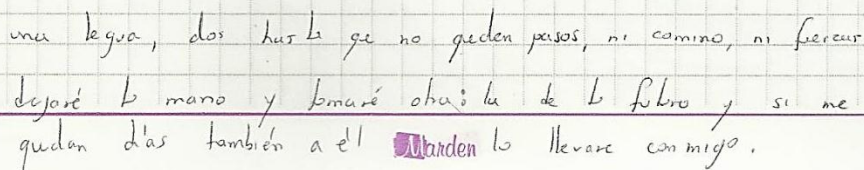 una legua, dos hasta qe no queden pasos, ni camino, ni fuerzas
dejaré la mano y tomaré otra: la de la futuro y si me
quedan días también a él Marden lo llevare conmigo.